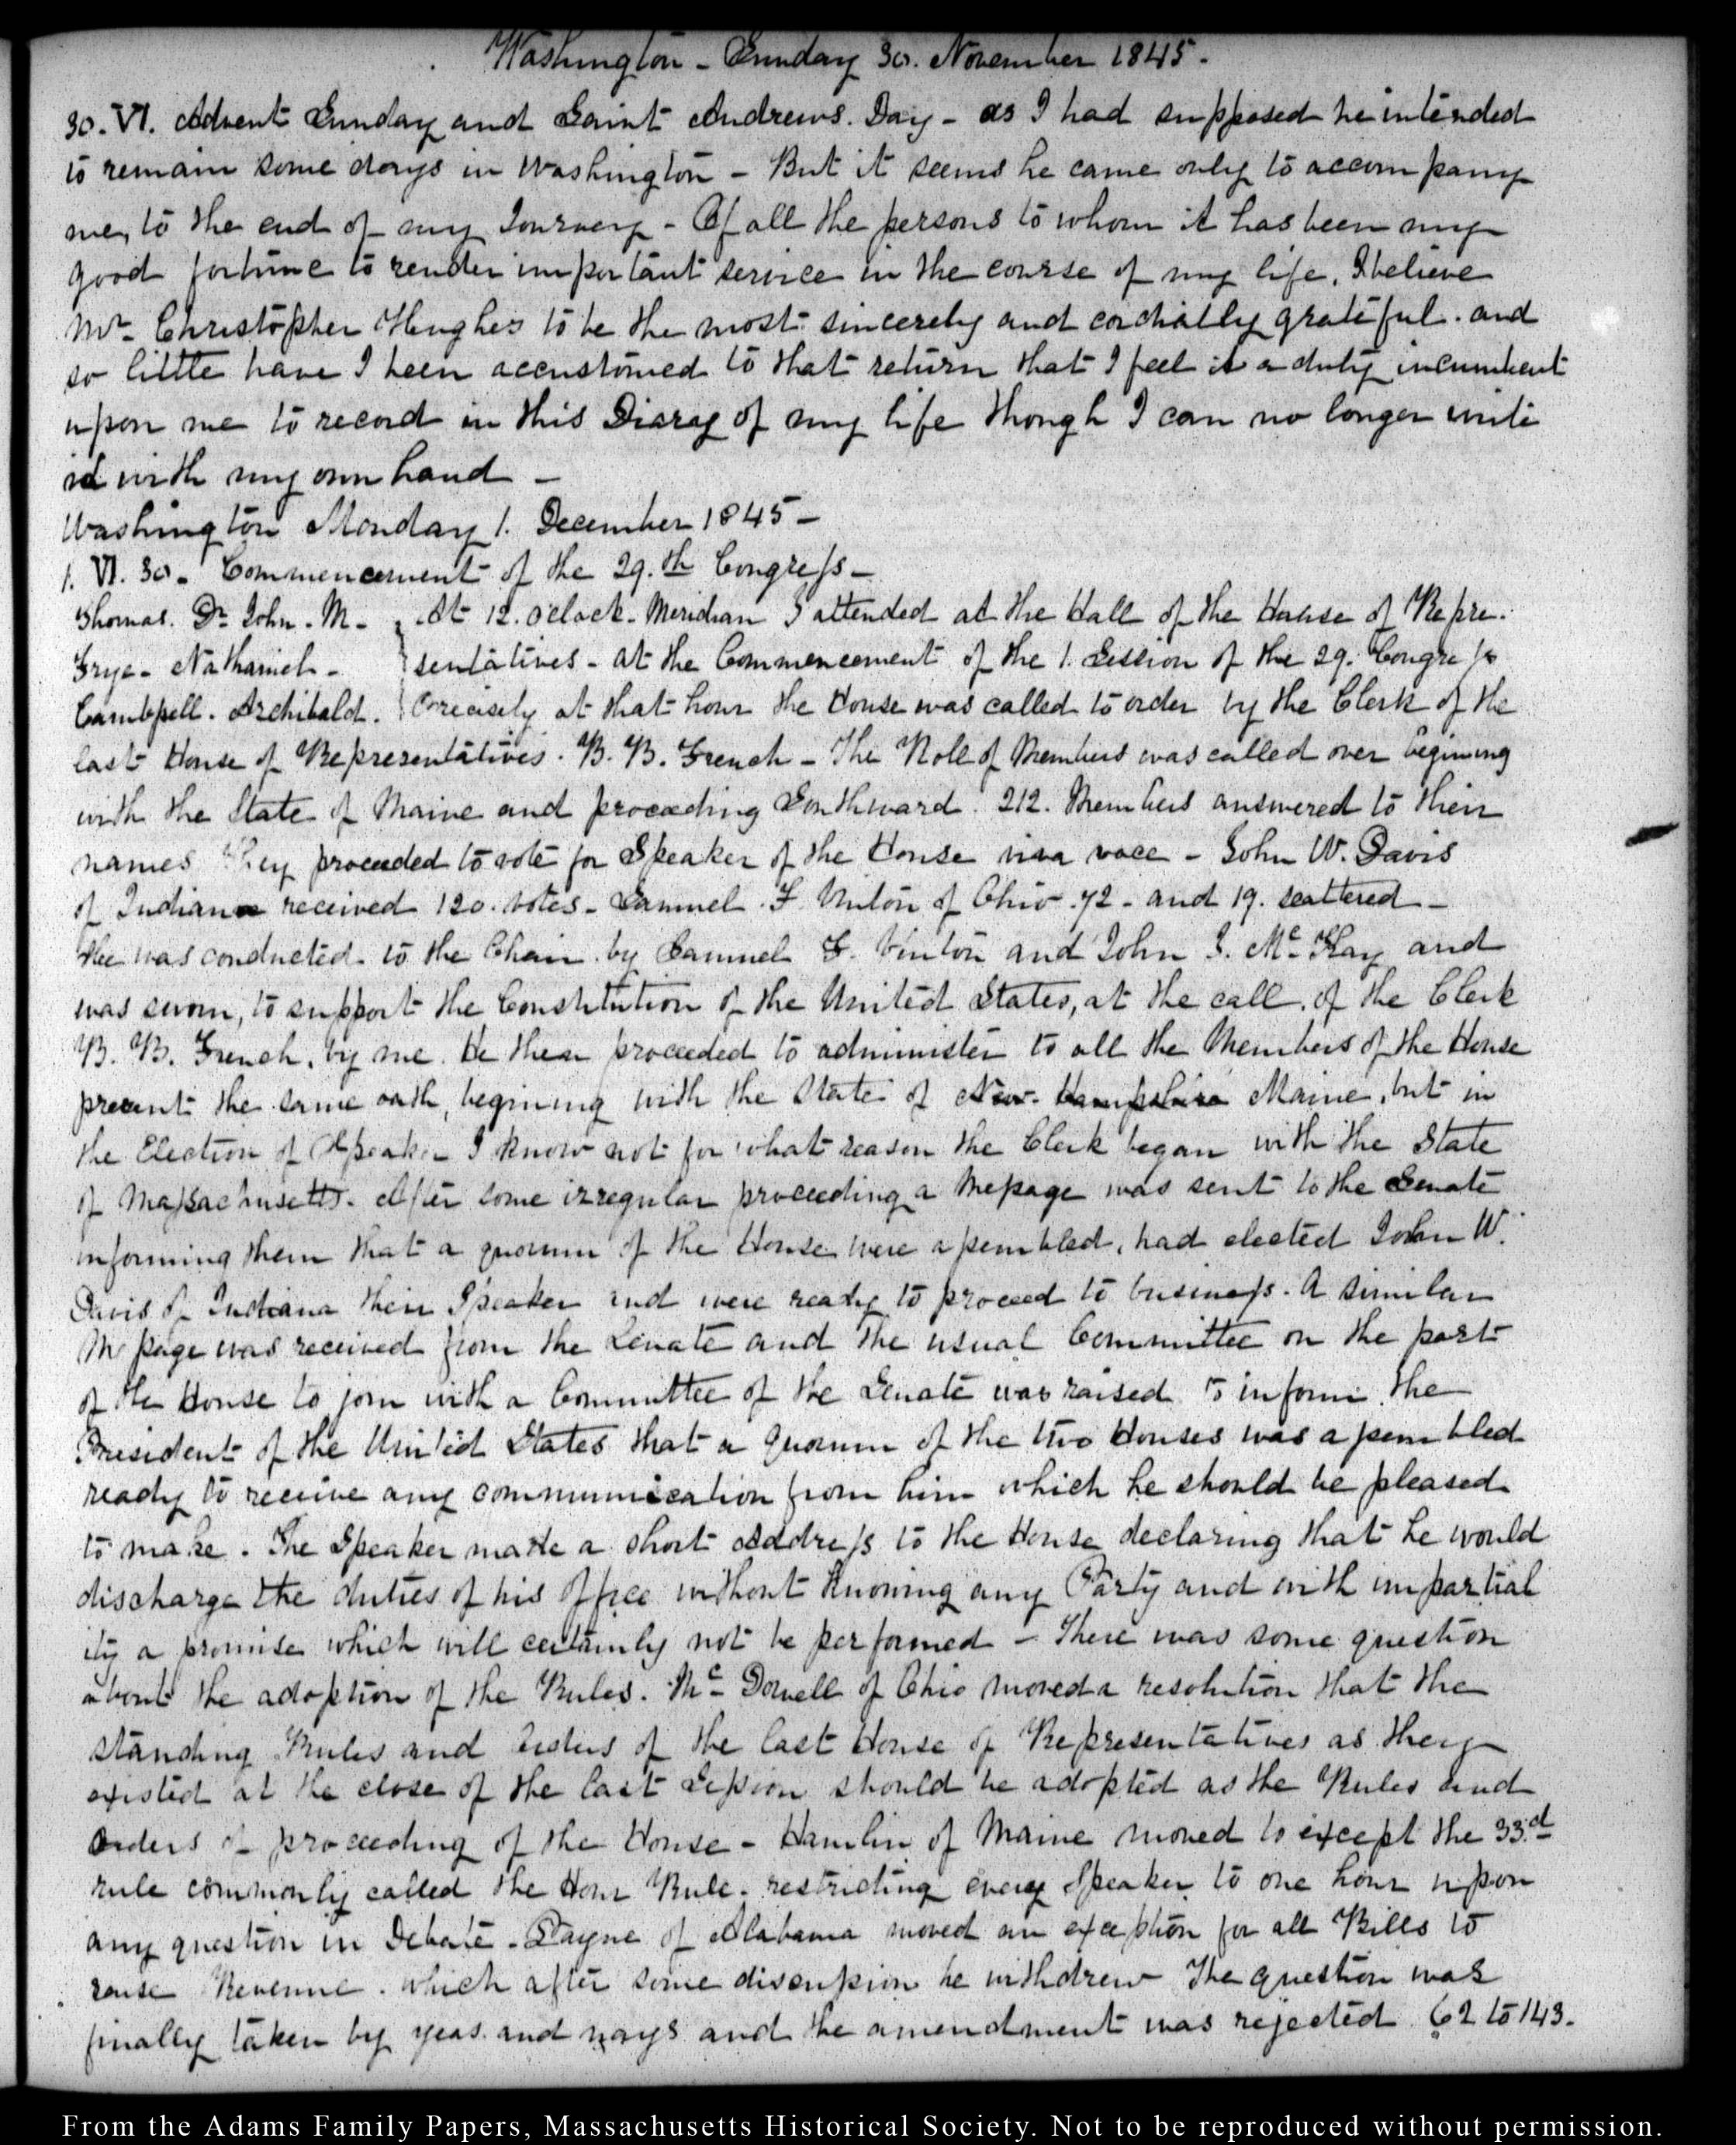 Washington - Sunday 30. November 1845.
30. VI. Advent Sunday and Saint Andrews. Day - as I had supposed he intended
to remain some days in Washington - But it seems he came only to accompany
me, to the end of my Journey - Of all the persons to whom it has been my
good fortune to render important service in the course of my life, I believe
Mr. Christopher Hughes to be the most sincerely and cordially grateful. and
so little have I been accustomed to that return that I feel it a duty incumbent
upon me to record in this Diary of my life though I can no longer write
it with my own hand -
Washington Monday 1. December 1845 -
1. VI. 30. Commencement of the 29.th Congress -
Thomas. Dr. John. M. - At 12. oclock. Meridian I attended at the Hall of the House of Repre.
Frye - Nathaniel - sentatives - at the Commencement of the 1. Session of the 29. Congress
Cambpell. Archibald. Precisely at that hour the House was called to order by the Clerk of the
last House of Representatives. B. B. French - The Roll of Members was called over begining
with the State of Maine and proceeding Southward. 212. Members answered to their
names They proceeded to vote for Speaker of the House viva voce - John W. Davis
of Indiana received 120. votes - Samuel. F. Vinton of Ohio. 72 - and 19. scattered -
He was conducted to the Chair by Samuel F. Vinton and John J. Mc. Kay and
was sworn, to support the Constitution of the United States, at the call of the Clerk
B. B. French, by me. He then proceeded to administer to all the Members of the House
present the same oath, begining with the State of New Hampshire Maine, but in
the Election of Speaker I know not for what reason the Clerk began with the State
of Massachusetts. After some irregular proceeding a Message was sent to the Senate
informing them that a quorum of the House were assembled, had elected John W.
Davis of Indiana their Speaker and were ready to proceed to business. A similar
Message was received from the Senate and the usual Committee on the part
of the House to join with a Committee of the Senate was raised to inform the
President of the United States that a Quorum of the two Houses was assembled
ready to receive any communication from him which he should be pleased
to make. The Speaker made a short address to the House declaring that he would
discharge the duties of his Office without knowing any Party and with impartial
ity a promise which will certainly not be performed - There was some question
about the adoption of the Rules. Mc. Dowell of Ohio moved a resolution that the
standing Rules and Orders of the last House of Representatives as they
existed at the close of the last Session should be adopted as the Rules and
Orders of proceeding of the House - Hamlin of Maine moved to except the 33.d
rule commonly called the Hour Rule. restricting every Speaker to one hour upon
any question in Debate - Payne of Alabama moved an exception for all Bills to
raise Revenue. which after some discussion he withdrew The question was
finally taken by yeas and nays and the amendment was rejected 62 to 143.
From the Adams Family Papers, Massachusetts Historical Society. Not to be reproduced without permission.